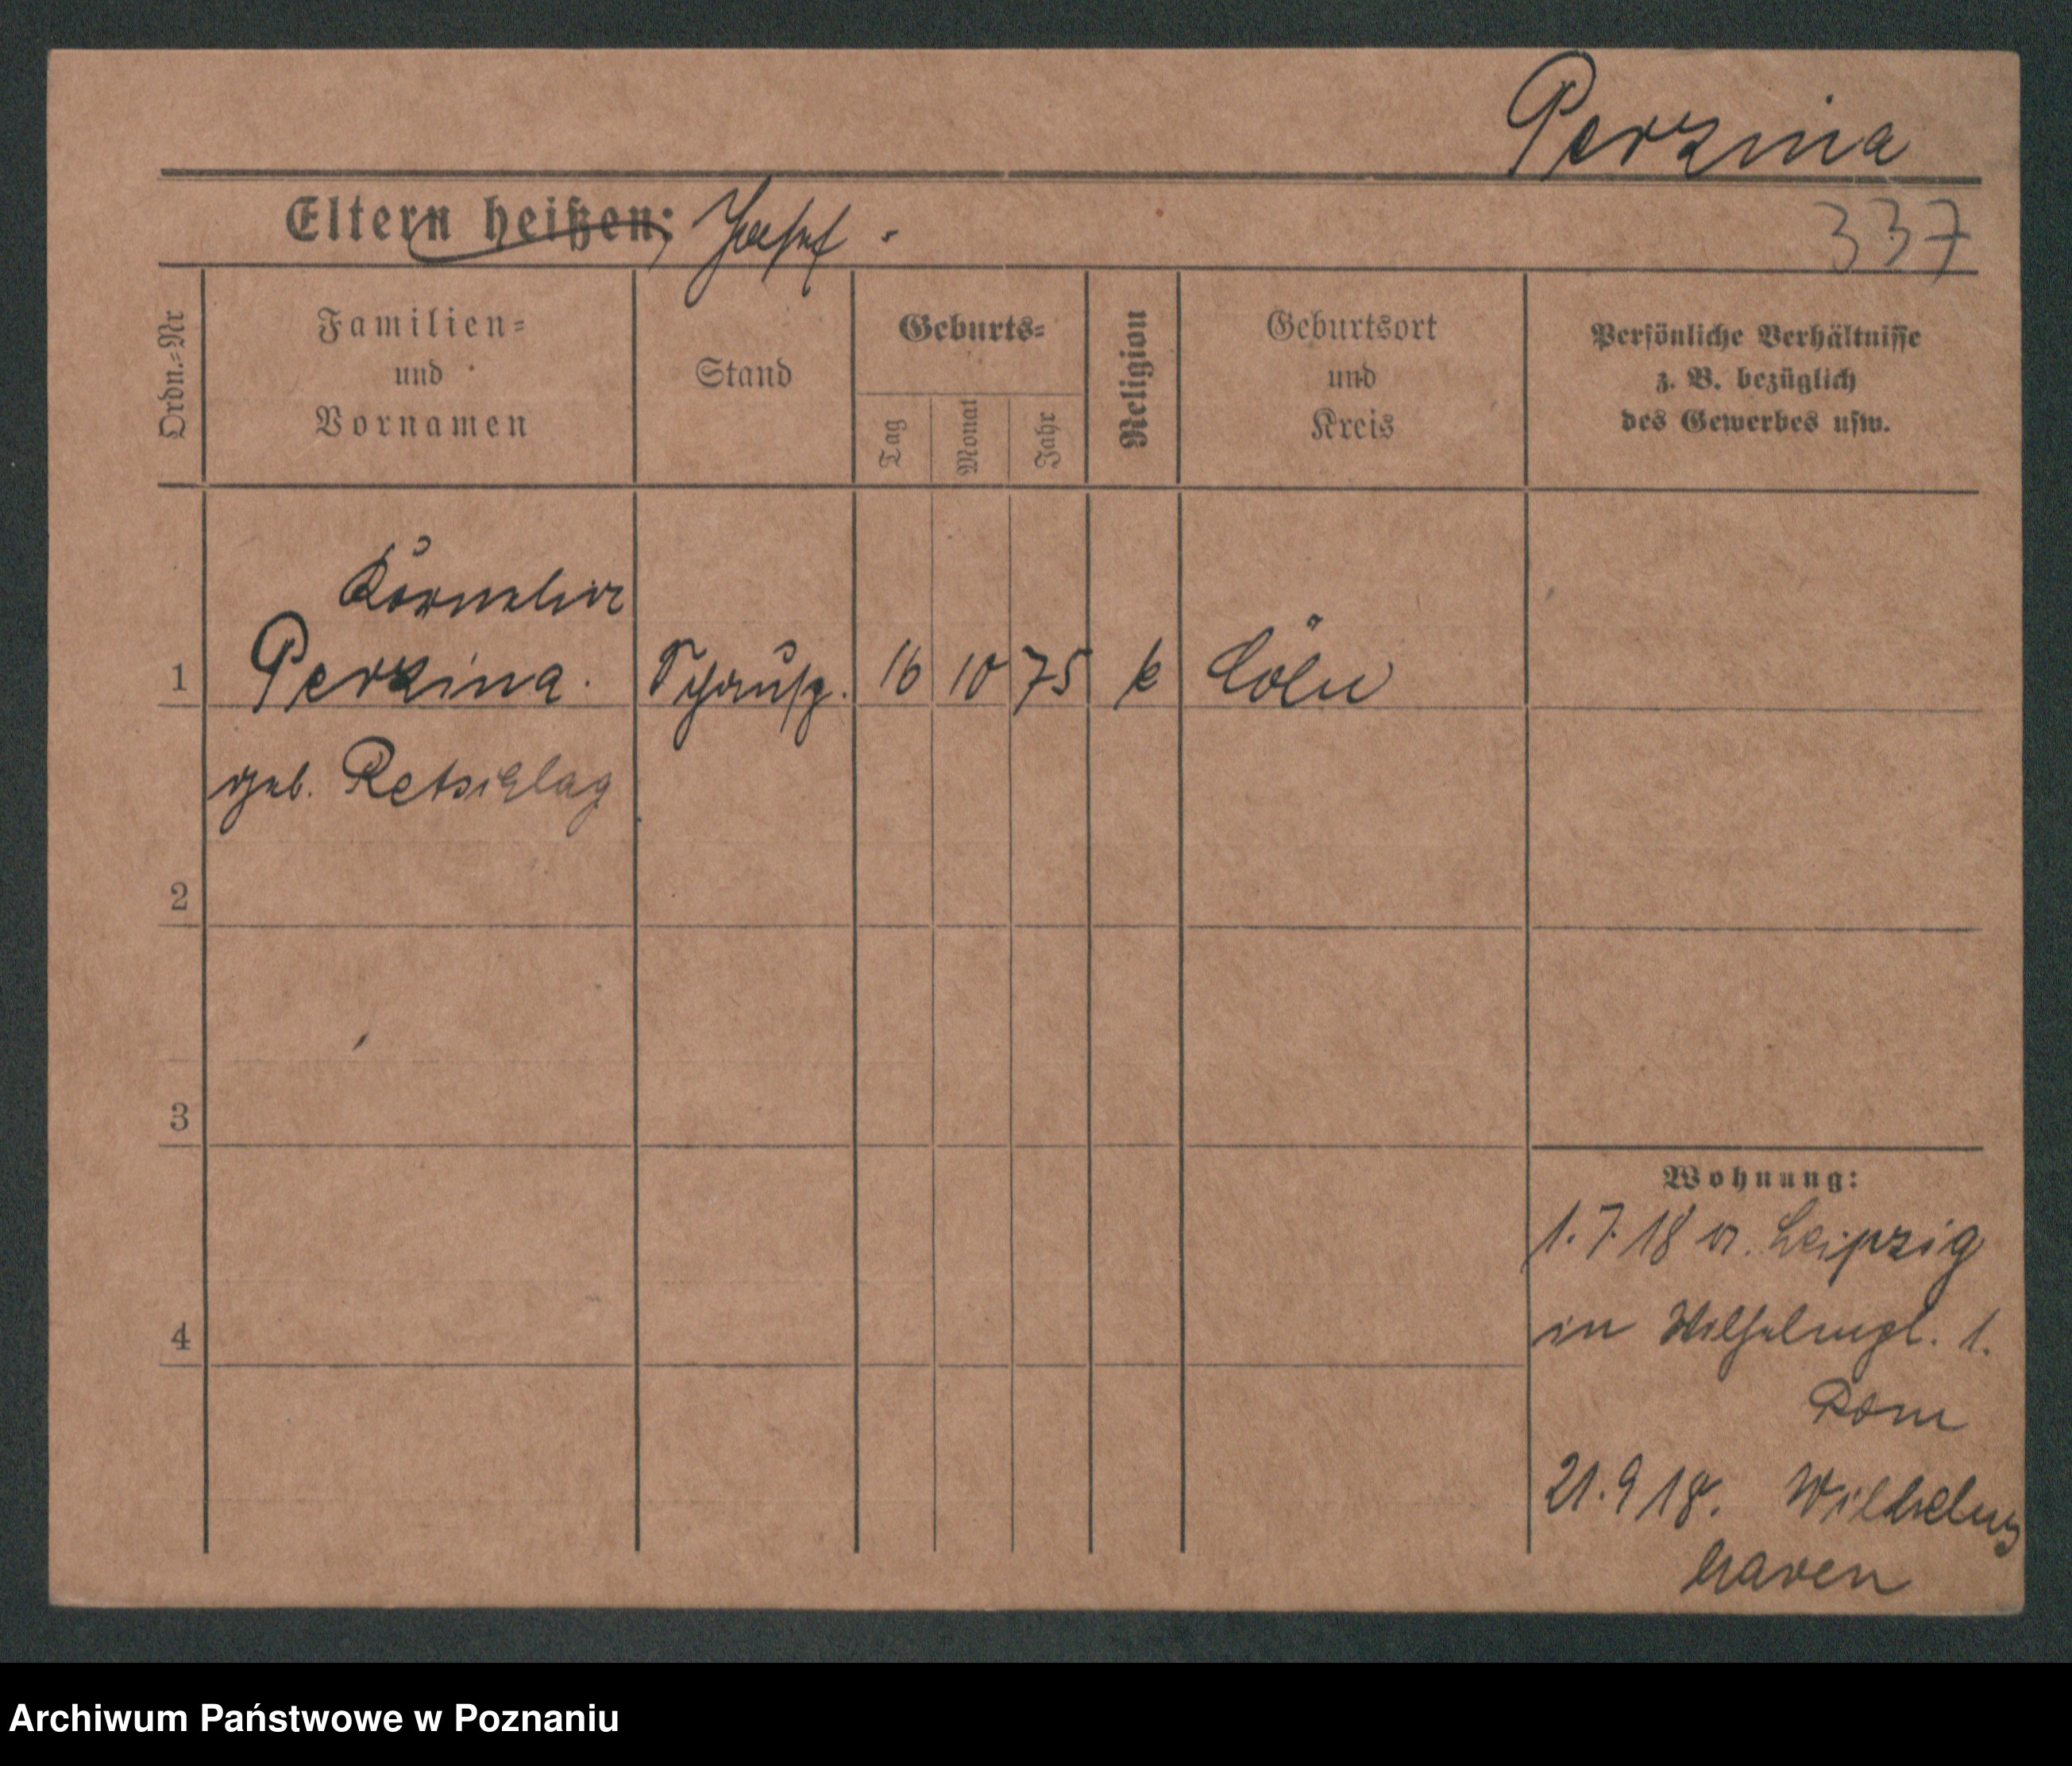 Perzina
Eltern heißen: Josef.
337
Ordn.=Nr
Familien=
und
Vornamen
Stand
Geburts=
Tag
Monat
Jahr
Religion
Geburtsort
und
Kreis
Persönliche Verhältnisse
z. B. bezüglich
des Gewerbes usw.
Kornelia
1 Perzina. Schausp. 16 10 75 k Cöln
geb. Retschlag
2
3
4
Wohnung:
1.7.18 a. Leipzig
in Wilhelmpl. 1.
21.9.18. Wilhelms
haven
Archiwum Państwowe w Poznaniu